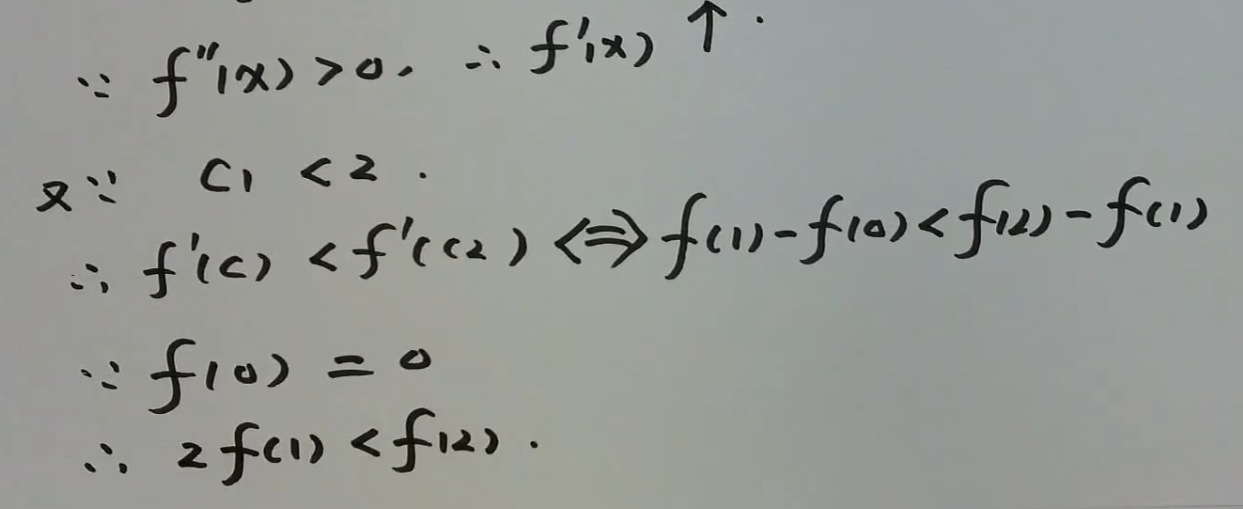 ∵ f''(x) > 0. ∴ f'(x) ↑.
又∵ c1 < 2.
∴ f'(c) < f'(c2) ⇔ f(1) - f(0) < f(2) - f(1)
∵ f(0) = 0
∴ 2f(1) < f(2).